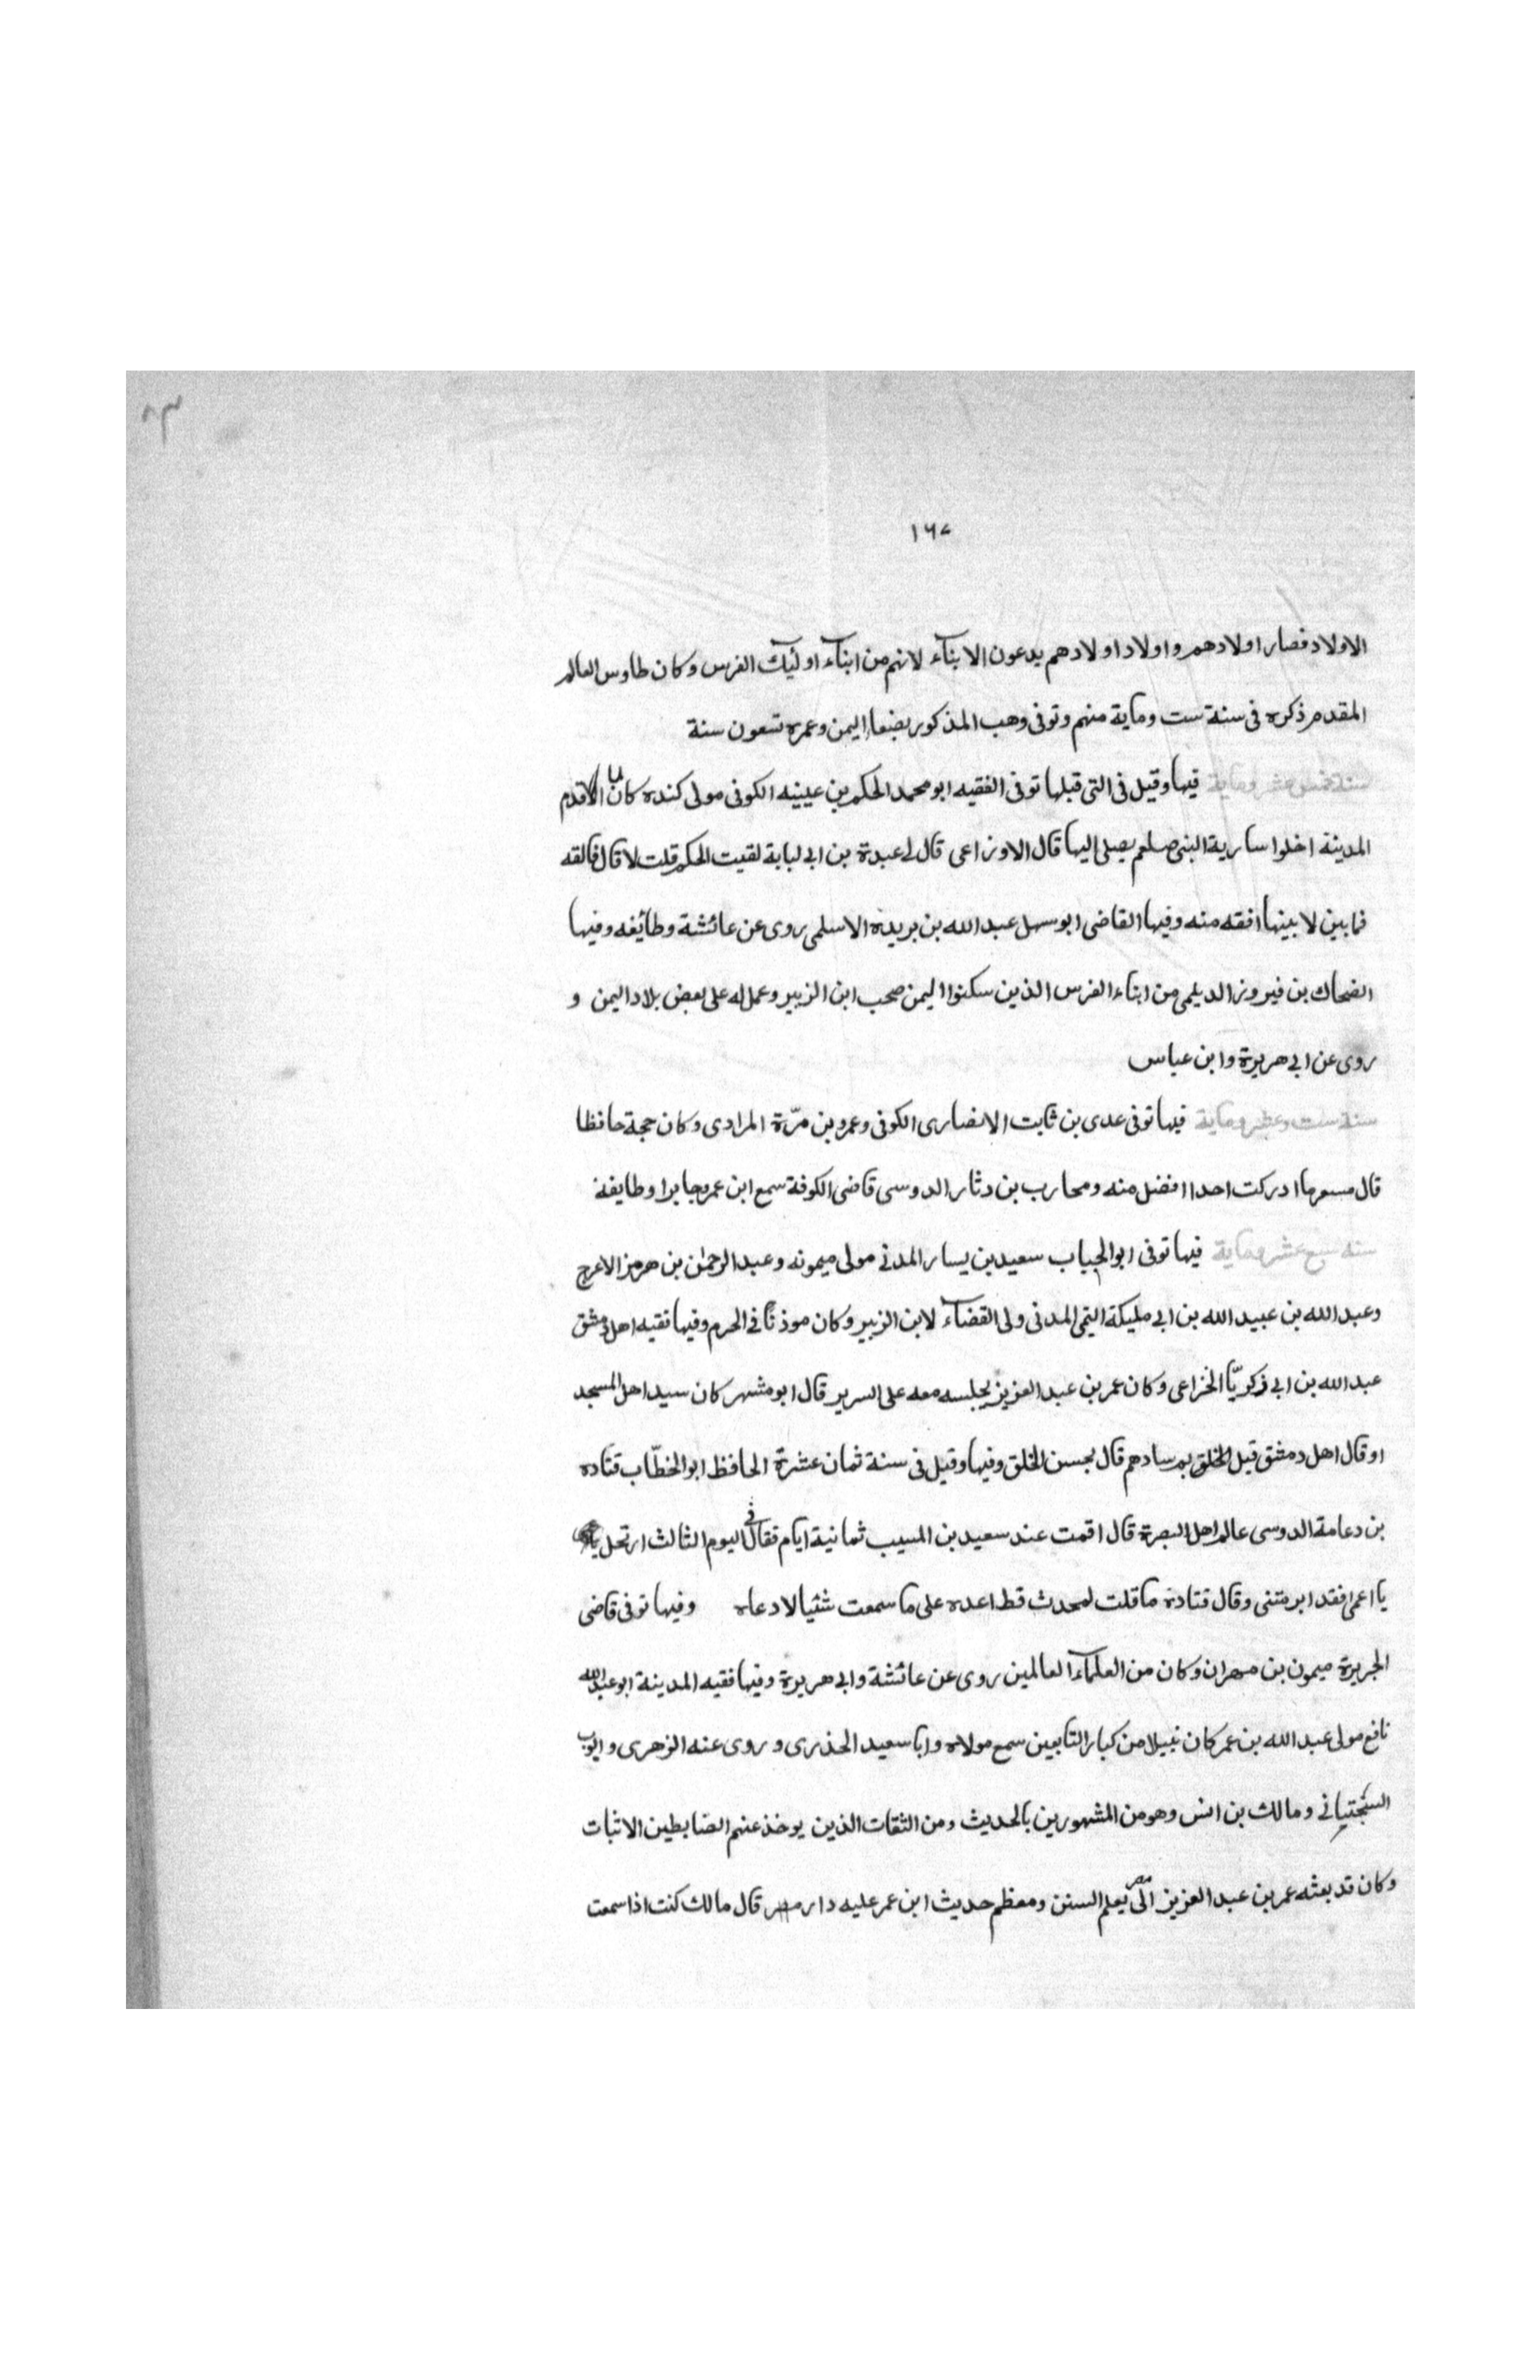 ٨٣
١٦٧
الاولاد فصار اولادهم واولاد اولادهم يدعون الابناء لانهم من ابناء اوليك الفرس وكان طاوس العالم
المقدم ذكره فى سنة ست وماية منهم وتوفى وهب المذكور بصنعا اليمن وعمره تسعون سنة
سنة خمس عشر وماية فيها وقيل فى التى قبلها توفى الفقيه ابو محمد الحكم بن عيينه الكوفى مولى كنده كان اذا قدم
المدينة اخلوا سارية النبى صلعم يصلى اليها قال الاوزاعى قال لى عبدة بن ابى لبابة لقيت الحكم قلت لا قال فالقه
فما بين لابيتها افقه منه وفيها القاضى ابو سهل عبد الله بن بريدة الاسلمى روى عن عائشة وطائفه وفيها
الضحاك بن فيروز الديلمى من ابناء الفرس الذين سكنوا اليمن صحب ابن الزبير وعمل له على بعض بلاد اليمن و
روى عن ابى هريرة وابن عباس
سنة ست وعشر وماية فيها توفى عدى بن ثابت الانصارى الكوفى وعمرو بن مرّة المرادى وكان حجة حافظا
قال مسعر ما ادركت احدا افضل منه ومحارب بن دثار الدوسى قاضى الكوفة سمع ابن عمر وجابرا وطايفة
سنة سبع عشر وماية فيها توفى ابو الحباب سعيد بن يسار المدنى مولى ميمونه وعبد الرحمن بن هرمز الاعرج
وعبد الله بن عبيد الله بن ابى مليكة التيمى المدنى ولى القضاء لابن الزبير وكان موذنًا فى الحرم وفيها فقيه اهل دمشق
عبد الله بن ابى زكريّا الخزاعى وكان عمر بن عبد العزيز يجلسه معه على السرير قال ابو مشهر كان سيد اهل المسجد
او قال اهل دمشق قيل الخلق بم سادهم قال بحسن الخلق وفيها وقيل فى سنة ثمان عشرة الحافظ ابو الخطّاب قتاده
بن دعامة الدوسى عالم اهل البصرة قال اقمت عند سعيد بن المسيب ثمانية ايام فقال فى اليوم الثالث ارتحل
يا اعمى فقد ابرمتنى وقال قتادة ما قلت لمحدث قط اعده على ما سمعت شئيا الا دعاه وفيها توفى قاضى
الجريرة ميمون بن مهران وكان من العلماء العالمين روى عن عائشة وابى هريرة وفيها فقيه المدينة ابو عبد الله
نافع مولى عبد الله بن عمر كان نبيلا من كبار التابعين سمع مولاه وابا سعيد الخذرى وروى عنه الزهرى وايوب
السختيانى ومالك بن انس وهو من المشهورين بالحديث ومن الثقات الذين يوخذ عنهم الضابطين الاثبات
وكان قد بعثه عمر بن عبد العزيز الى مصر يعلم السنن ومعظم حديث ابن عمر عليه دار قال مالك كنت اذا سمعت